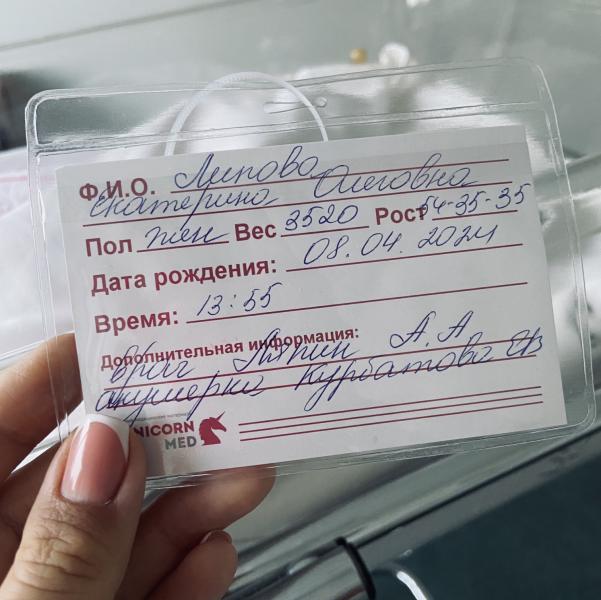 Ф.И.О. Липова
Екатерина Олеговна
Пол жен Вес 3520 Рост 54-35-35
Дата рождения: 08.04.2024
Время: 13:55
Дополнительная информация:
Врач А.А
акушерка Курбатова
UNICORN
MED